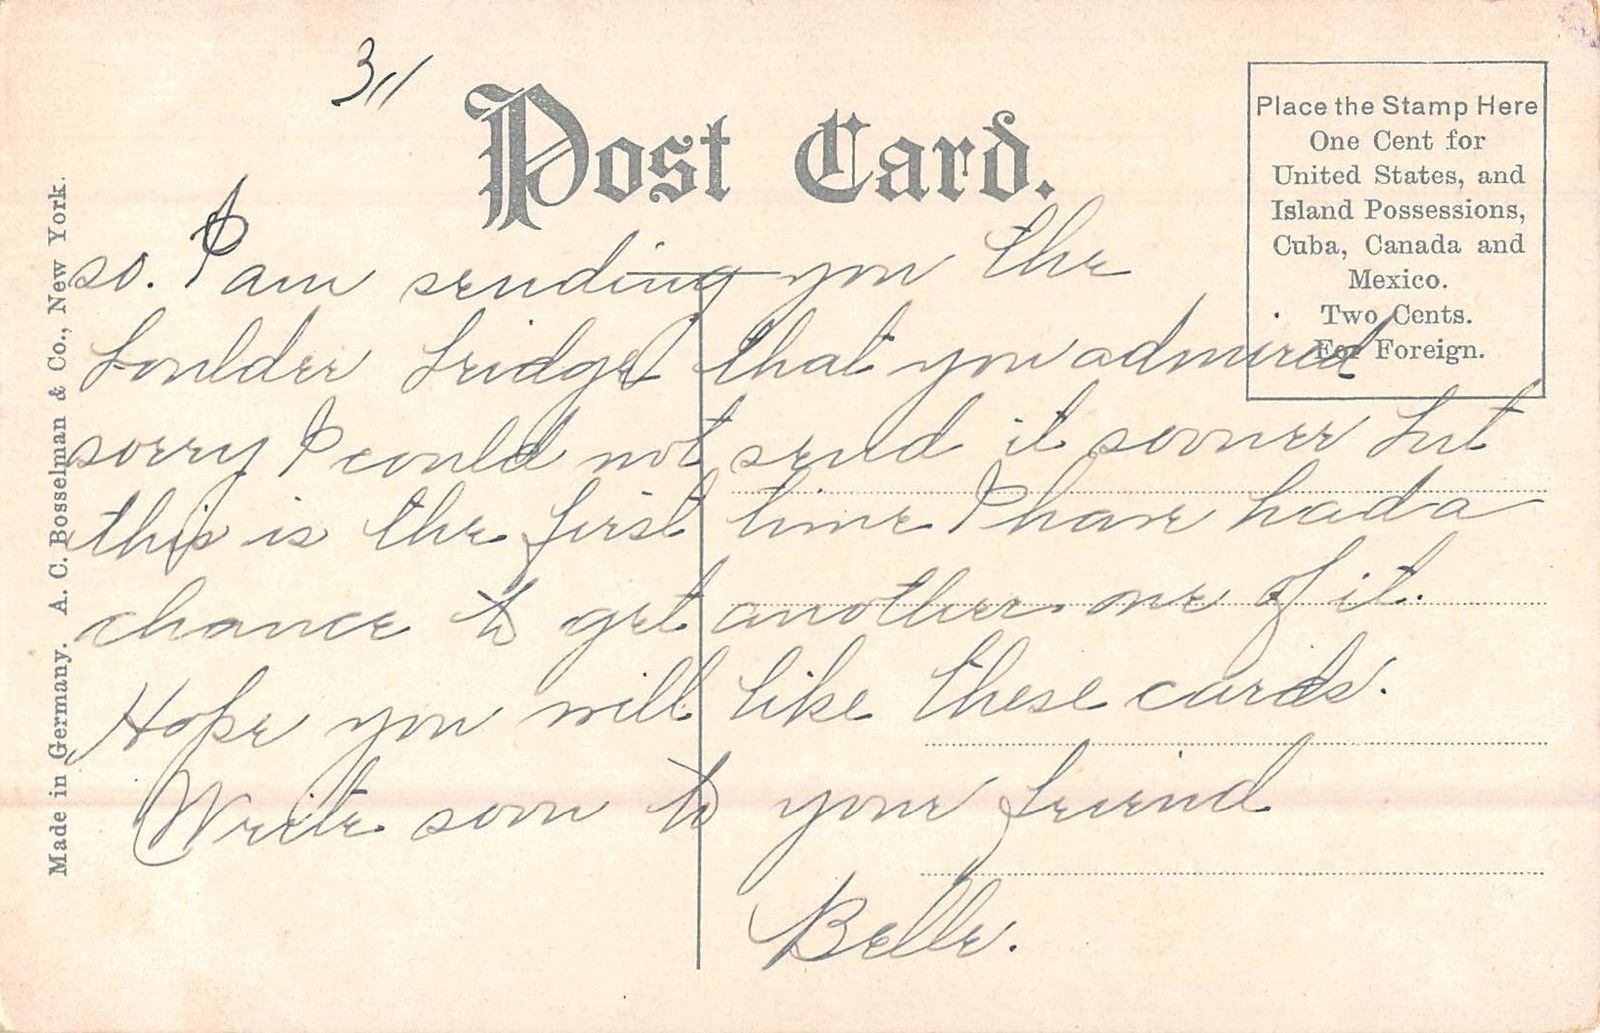 311
Post Card.
Place the Stamp Here
One Cent for
United States, and
Island Possessions,
Cuba, Canada and
Mexico.
Two Cents.
For Foreign.
Made in Germany. A. C. Bosselman & Co., New York.
so. I am sending you the
boulder bridge that you admired
sorry I could not send it sooner but
this is the first time I have had a
chance to get another one of it.
Hope you will like these cards.
Write soon to your friend
Belle.